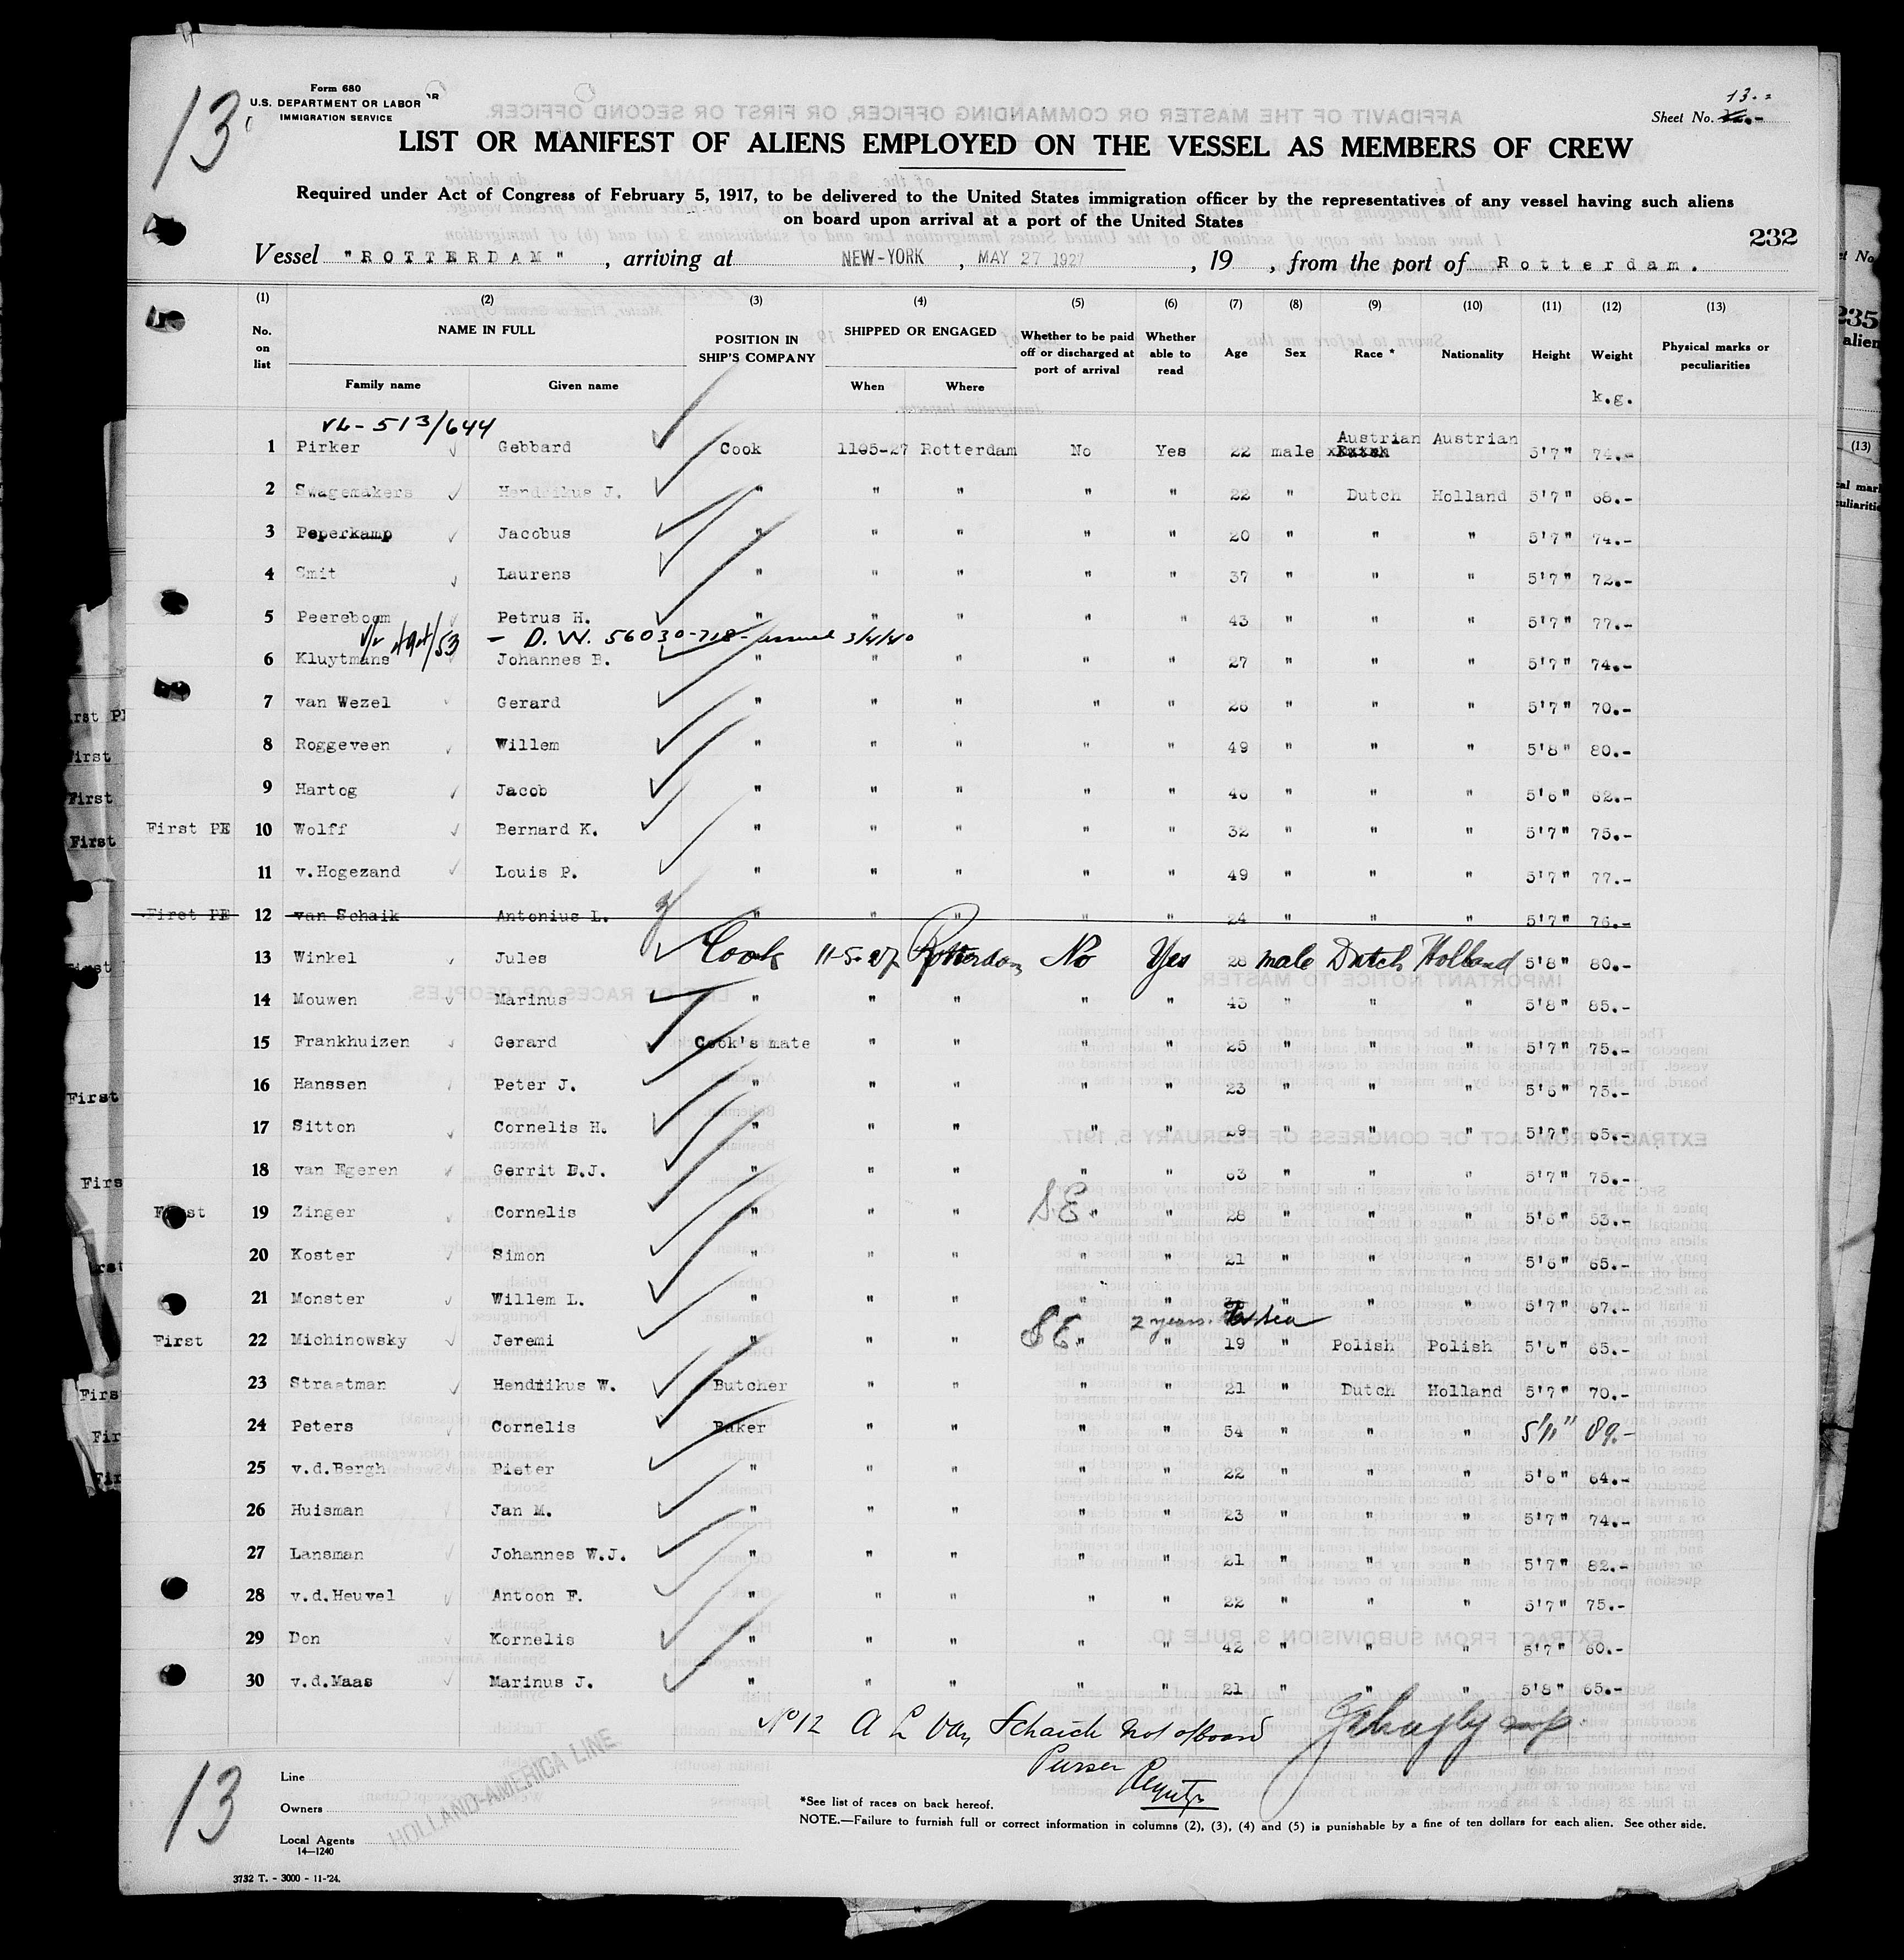 13
Form 680
U.S. DEPARTMENT OR LABOR
IMMIGRATION SERVICE
13.=
Sheet No.
LIST OR MANIFEST OF ALIENS EMPLOYED ON THE VESSEL AS MEMBERS OF CREW
Required under Act of Congress of February 5, 1917, to be delivered to the United States immigration officer by the representatives of any vessel having such aliens
on board upon arrival at a port of the United States
232
Vessel "ROTTERDAM", arriving at NEW-YORK, MAY 27 1927, 19 , from the port of Rotterdam.
(1) (2) (3) (4) (5) (6) (7) (8) (9) (10) (11) (12) (13)
No. on list NAME IN FULL Family name Given name POSITION IN SHIP'S COMPANY SHIPPED OR ENGAGED When Where Whether to be paid off or discharged at port of arrival Whether able to read Age Sex Race * Nationality Height Weight k.g. Physical marks or peculiarities
VL-513/644
1 Pirker Gebbard Cook 1105-27 Rotterdam No Yes 22 male Austrian Austrian 5'7" 74.-
2 Swagemakers Hendrikus J. " " " " " 22 " Dutch Holland 5'7" 68.-
3 Peperkamp Jacobus " " " " " 20 " " " 5'7" 74.-
4 Smit Laurens " " " " " 37 " " " 5'7" 72.-
5 Peereboom Petrus H. " " " " " 43 " " " 5'7" 77.-
- D.W. 56030-718- issued 3/4/40
6 Kluytmans Johannes B. " " " " " 27 " " " 5'7" 74.-
7 van Wezel Gerard " " " " " 26 " " " 5'7" 70.-
8 Roggeveen Willem " " " " " 49 " " " 5'8" 80.-
9 Hartog Jacob " " " " " 46 " " " 5'6" 62.-
First PE 10 Wolff Bernard K. " " " " " 32 " " " 5'7" 75.-
11 v.Hogezand Louis P. " " " " " 49 " " " 5'7" 77.-
First PE 12 van Schaik Antonius L. " " " " " 24 " " " 5'7" 76.-
13 Winkel Jules Cook 11-5-27 Rotterdam No Yes 28 male Dutch Holland 5'8" 80.-
14 Mouwen Marinus " " " " " 43 " " " 5'8" 85.-
15 Frankhuizen Gerard Cook's mate " " " " 25 " " " 5'7" 75.-
16 Hanssen Peter J. " " " " " 23 " " " 5'6" 75.-
17 Sitton Cornelis H. " " " " " 29 " " " 5'7" 65.-
18 van Egeren Gerrit D.J. " " " " " 63 " " " 5'7" 75.-
S.E.
First 19 Zinger Cornelis " " " " " 28 " " " 5'6" 53.-
20 Koster Simon " " " " " 21 " " " 5'6" 65.-
21 Monster Willem L. " " " " " " " " 5'7" 67.-
SE 2 years.
First 22 Michinowsky Jeremi " " " " " 19 " Polish Polish 5'6" 65.-
23 Straatman Hendrikus W. Butcher " " " " 21 " Dutch Holland 5'7" 70.-
24 Peters Cornelis Baker " " " " 54 " " " 5'11" 89.-
25 v.d.Bergh Pieter " " " " " 22 " " " 5'6" 64.-
26 Huisman Jan M. " " " " " 23 " " " 5'7" 74.-
27 Lansman Johannes W.J. " " " " " 21 " " " 5'7" 82.-
28 v.d.Heuvel Antoon F. " " " " " 22 " " " 5'7" 75.-
29 Don Kornelis " " " " " 42 " " " 5'7" 60.-
30 v.d.Maas Marinus J. " " " " " 21 " " " 5'8" 65.-
No 12 A L van Schaick not o/board
Purser
13
Line
Owners
HOLLAND-AMERICA LINE
Local Agents
14—1240
*See list of races on back hereof.
NOTE.—Failure to furnish full or correct information in columns (2), (3), (4) and (5) is punishable by a fine of ten dollars for each alien. See other side.
3732 T. - 3000 - 11-'24.